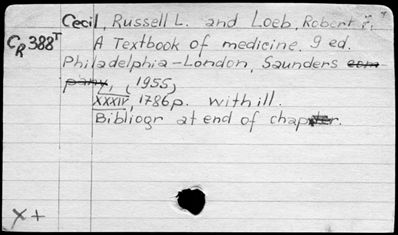 Cecil, Russell L. and Loeb, Robert F.
CR 388T A Textbook of medicine. 9 ed.
Philadelphia-London, Saunders com
pany, (1955)
XXXIV, 1786p. with ill.
Bibliogr at end of chapter.
X+